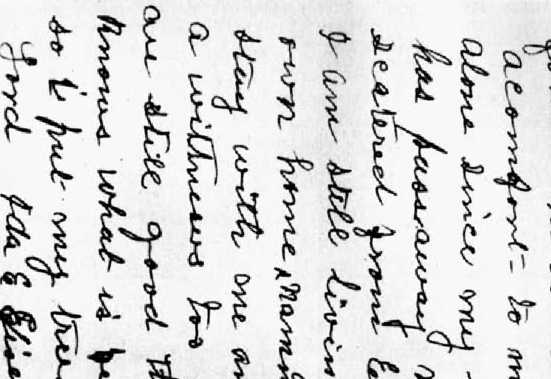 acomfort - to m
alone since my -
has passaway
scatered from
I am still livin
own home,
stay with me an
a withness too
are still good
knows what is
so I put my
Lord Ida E